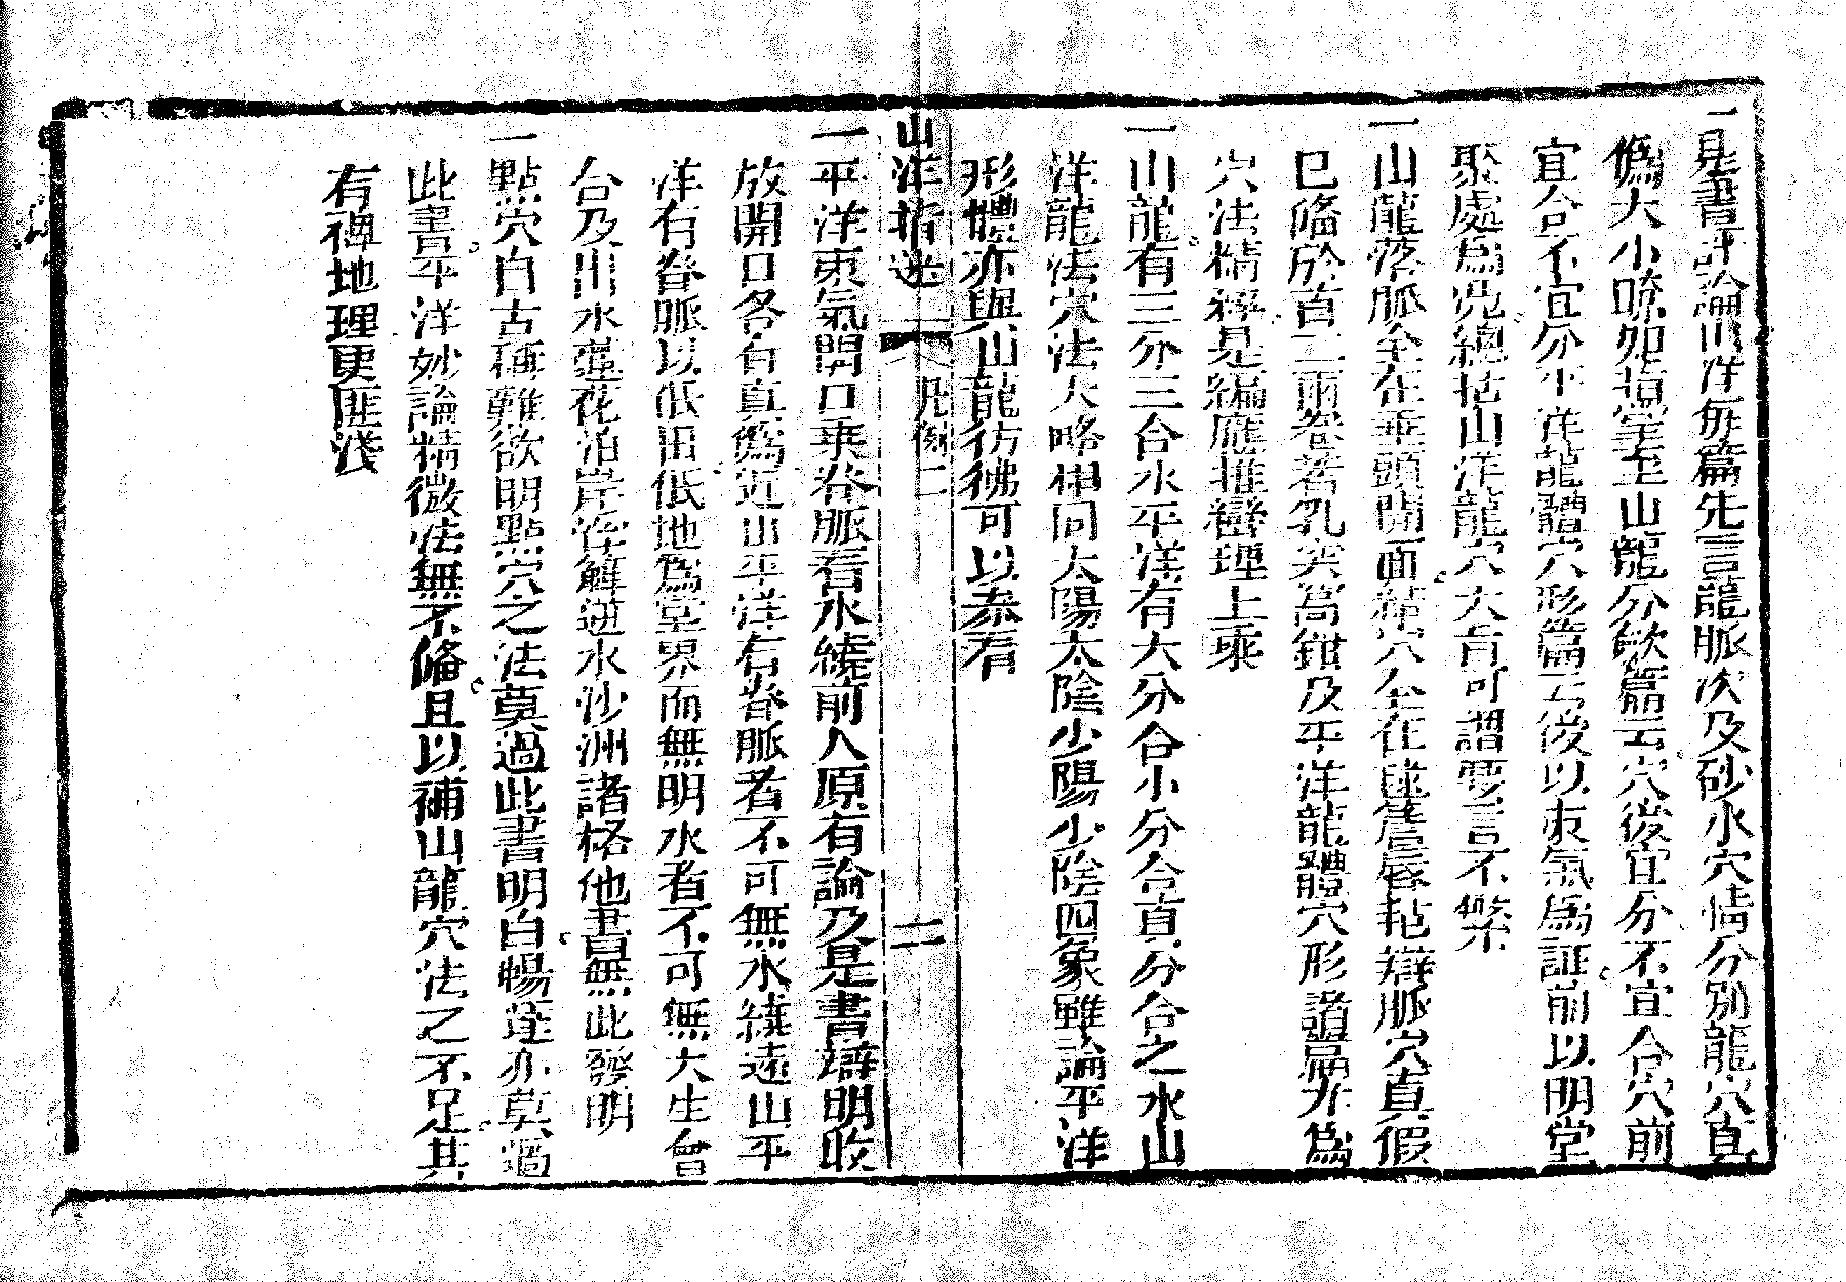 一是書評論山洋每篇先言龍脈次及砂水穴情分別龍穴真
偽大小曉如指掌至山龍分歛篇云穴後宜分不宜合穴前
宜合不宜分平洋龍體穴形篇云後以束氣為証前以明堂
聚處為況總括山洋龍穴大肓可謂要言不繁
一山龍落脈全在乖頭開面結穴全在毬簷唇毡辯脈穴真假
已俻於首二兩卷若乳突窩鉗及平洋龍體穴形諸篇尤為
穴法精粹是編應推巒理上乘
一山龍有三分三合水平洋有大分合小分合真分合之水山
洋龍法穴法大略相同太陽太陰少陽少陰四象雖論平洋
形體亦與山龍彷彿可以叅看
山洋指迷 凡例二 二
一平洋束氣開口乘脊脈看水繞前人原有論乃是書辯明收
放開口各有真偽近山平洋有脊脈者不可無水繞遠山平
洋有脊脈以低田低地為堂界而無明水者不可無大生會
合及出水蓮花泊岸浮簰逆水沙洲諸格他書無此發明
一點穴自古稱難欲明點穴之法莫過此書明白暢達亦莫過
此書平洋妙論精微法無不俻且以補山龍穴法之不足其
有裨地理更匪淺